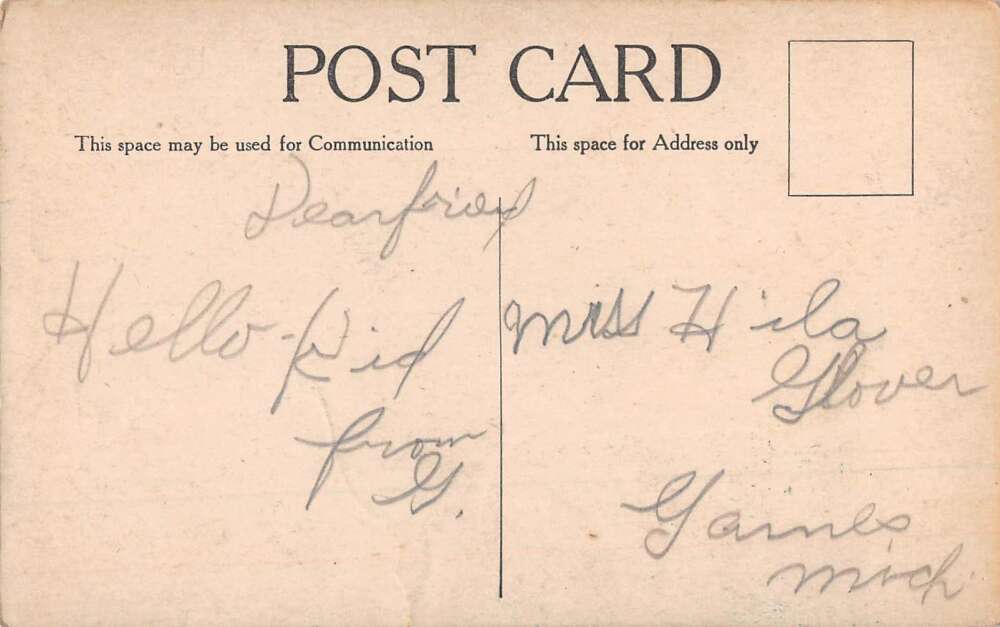 POST CARD
This space may be used for Communication
This space for Address only
Dear friend
Hello Kid
from
G.
Miss Hila
Glover
Gaines
Mich.